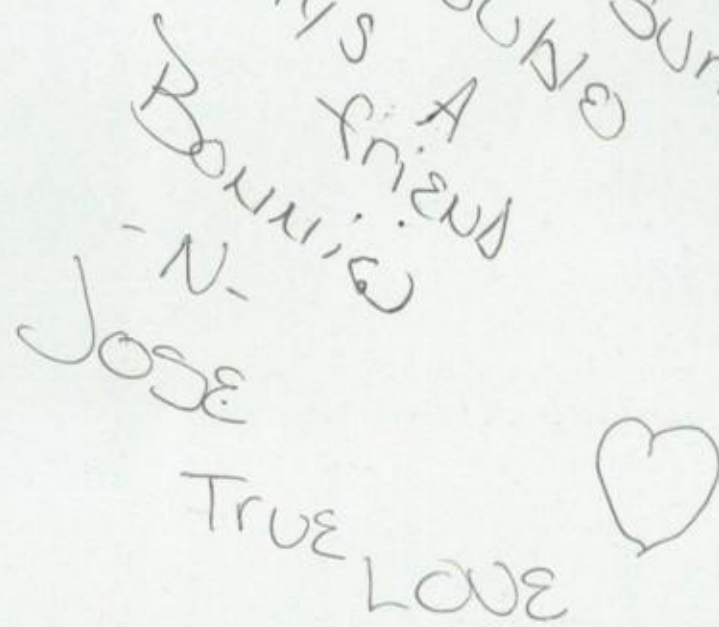 A
friend
Bonnie
-N-
Jose
True
Love